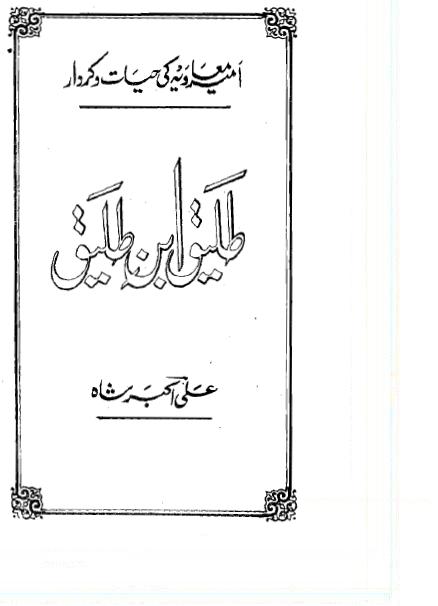 امیر معاویہ کی حیات و کردار
طلیق ابن طلیق
علی اکبر شاہ